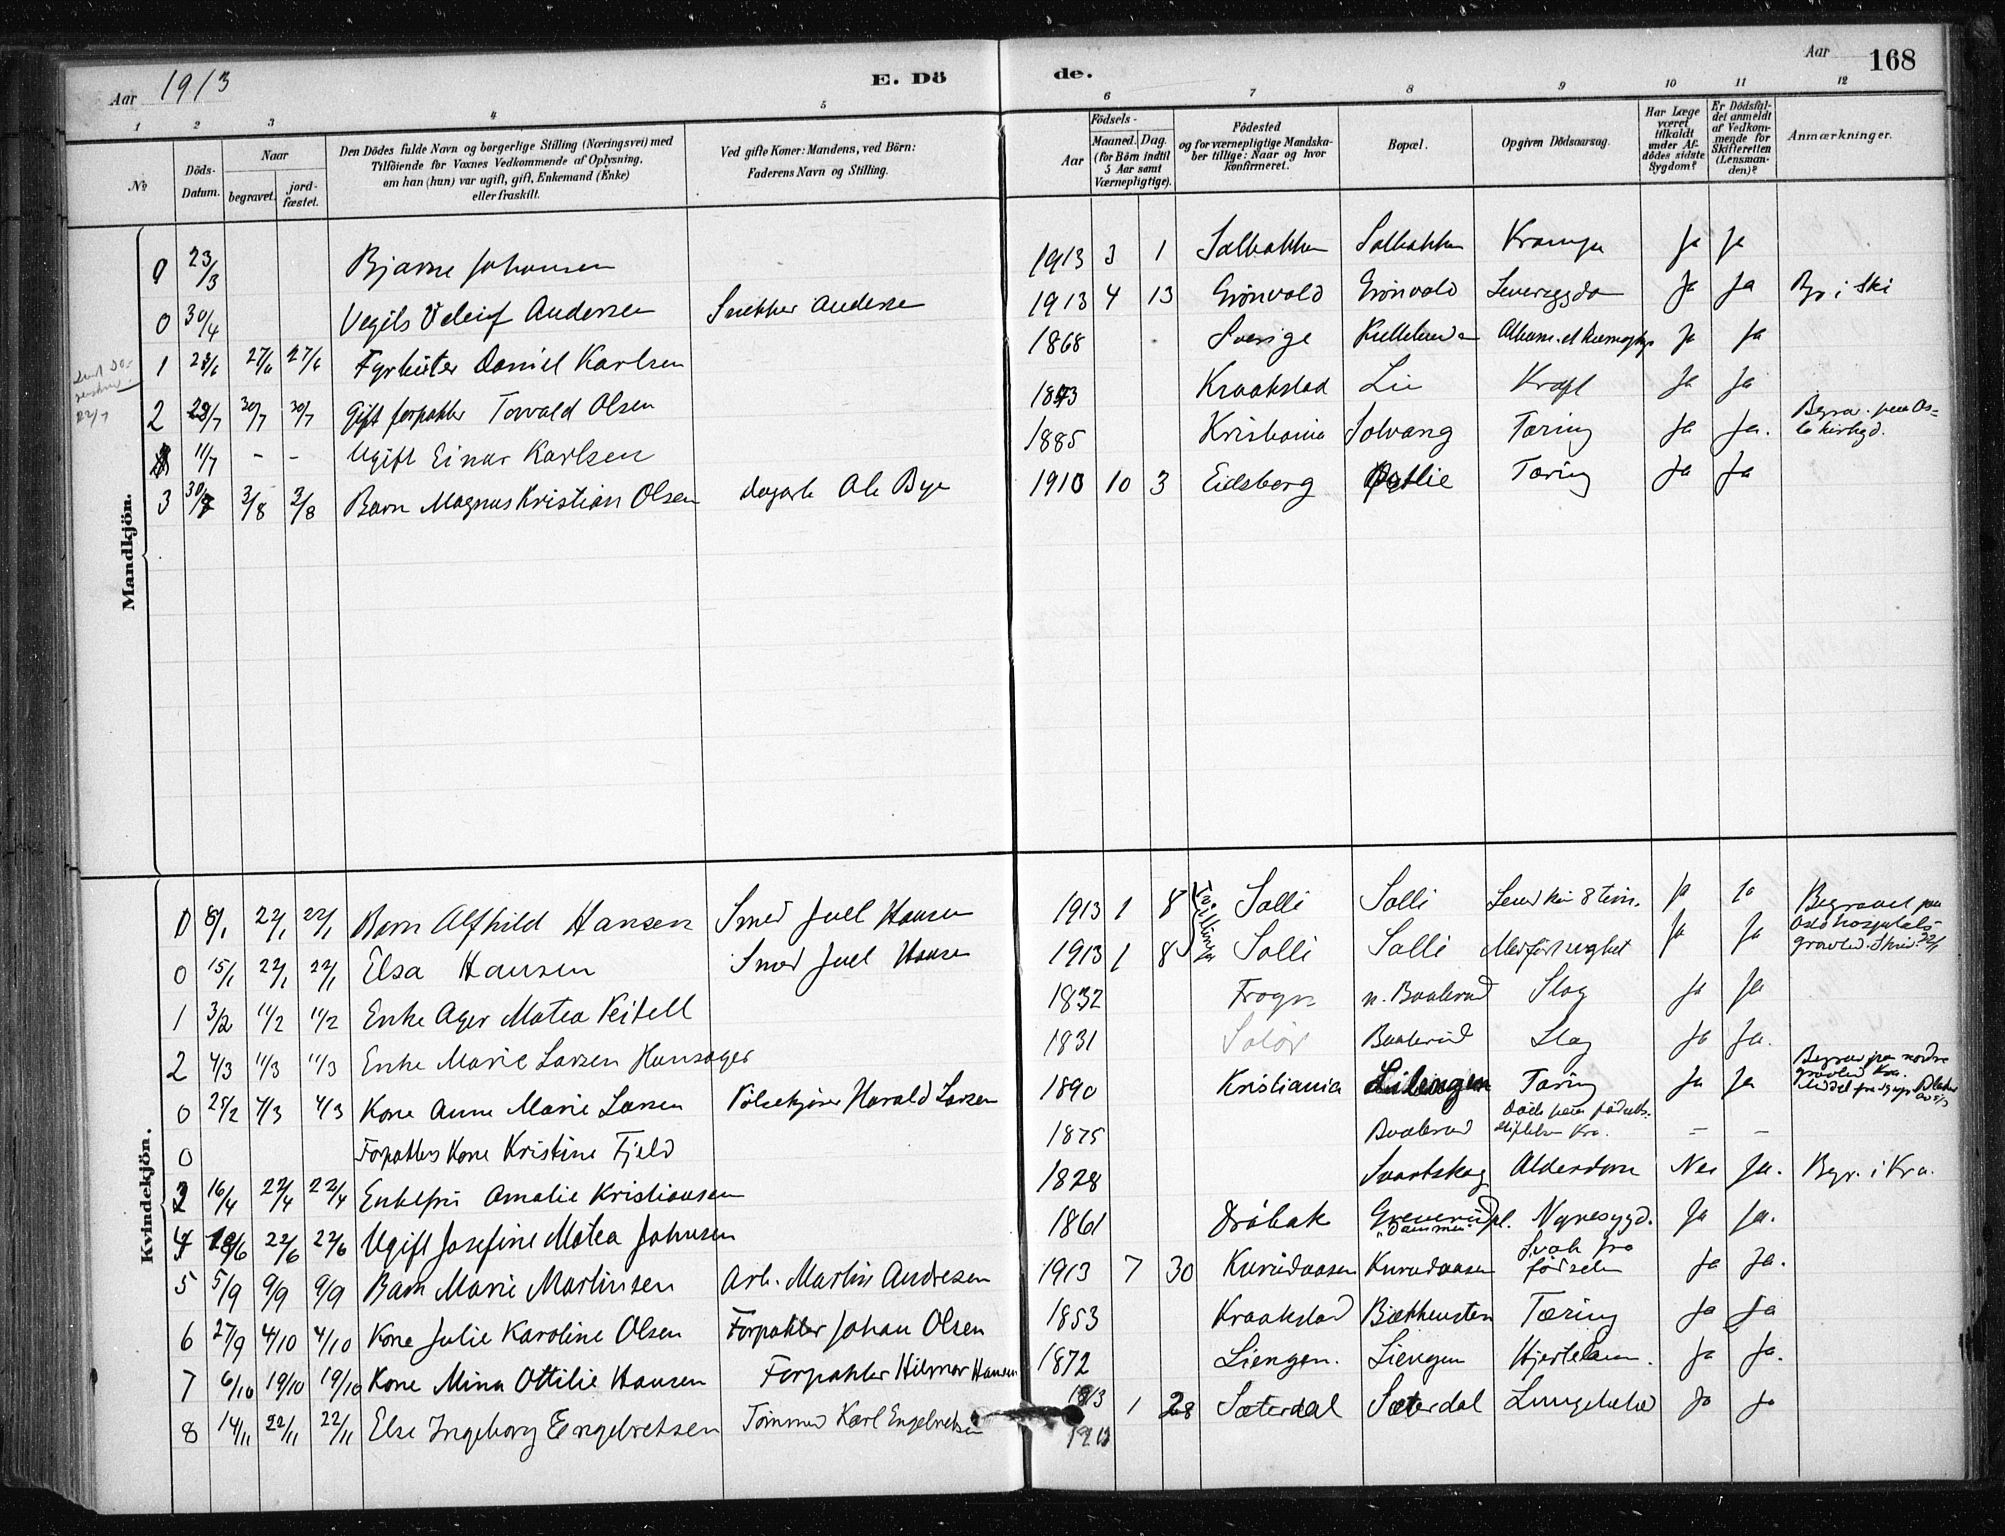 Aar 1913
E. Dö
de.
Aar
168
1 2 3 4 5 6 7 8 9 10 11 12
№
Döds-Datum.
Naar
begravet.
jord-fæstet.
Den Dödes fulde Navn og borgerlige Stilling (Næringsvei) med
Tilföiende for Voxnes Vedkommende af Oplysning,
om han (hun) var ugift, gift, Enkemand (Enke)
eller fraskilt.
Ved gifte Koner: Mandens, ved Börn:
Faderens Navn og Stilling.
Födsels-
Aar
Maaned. Dag.
(for Börn indtil
5 Aar samt
Værnepligtige).
Födested
og for værnepligtige Mandska-
ber tillige: Naar og hvor
konfirmeret.
Bopæl.
Opgiven Dödsaarsag.
Har Læge
været
tilkaldt
under Af-
dödes sidste
Sygdom?
Er Dödsfal-
det anmeldt
af Vedkom-
mende for
Skifteretten
(Lensman-
den)?
Anmærkninger.
Mandkjön.
0 23/3 Bjarne Johansen 1913 3 1 Solbakken Solbakken Krampe Ja Ja
0 30/4 Andersen Snekker Andersen 1913 4 13 Grönvold Grönvold Ja Ja Begr. i Ski
1 27/6 27/6 Fyrböter Daniel Karlsen 1868 Sverige Ja Ja
2 28/7 30/7 30/7 Gift forpakter Torvald Olsen Kraakstad Li Kræft Ja Ja
11/7 - - Ugift Einar Karlsen 1885 Kristiania Solvang Tæring Ja Ja. Begrav. paa Os=
lo kirkegd.
3 30/7 3/8 3/8 Barn Magnus Kristian Olsen Ole Bye 1910 10 3 Eidsberg Tæring Ja Ja
22/7
Kvindekjön.
0 8/1 22/1 22/1 Barn Alfhild Hansen Smed Juel Hansen 1913 1 8 Tvillinger Solli Solli Levet kun 8 tim. Ja Ja Begravet paa
0 15/1 22/1 22/1 Elsa Hansen Smed Juel Hansen 1913 1 8 Solli Solli Medfödt svaghet Ja Ja
1 3/2 11/2 11/2 Enke Matea Keitell 1832 Frogn n. Baalerud Slag Ja Ja
2 4/3 11/3 11/3 Enke Marie Larsen Hansager 1831 Solör Baalerud Slag Ja Ja.
0 25/2 4/3 4/3 Kone Anne Marie Larsen Pölsekjörer Harald Larsen 1890 Kristiania Lilengen Tæring Ja Ja Begrav. paa nordre
gravlund Kra.
0 Forpakters Kone Kristine Fjeld 1875 Baalerud Döde paa födsels-
stiftelsen Kra. - -
3 16/4 22/4 22/4 Enkefru Amalie Kristiansen 1828 Svartskog Alderdom Nei Ja. Begr. i Kra.
4 22/6 22/6 Ugift Josefine Matea Johnsen 1861 Dröbak Greverud pl.
"Dammen" Nyresygd. Ja Ja.
5 5/9 9/9 9/9 Barn Marie Martinsen Arb. Martin Andresen 1913 7 30 Kurudaasen Kurudaasen Svak fra
födselen Ja Ja.
6 27/9 4/10 4/10 Kone Julie Karoline Olsen Forpakter Johan Olsen 1853 Kraakstad Bækkensten Tæring Ja Ja
7 6/10 19/10 19/10 Kone Mina Ottilie Hansen Forpakter Hilmar Hansen 1872 Liengen. Liengen Ja Ja.
8 14/11 22/11 22/11 Else Ingeborg Engelvetsen Tömmerm Karl Engelvetsen 1913 1 28 Sæterdal Sæterdal Ja Ja